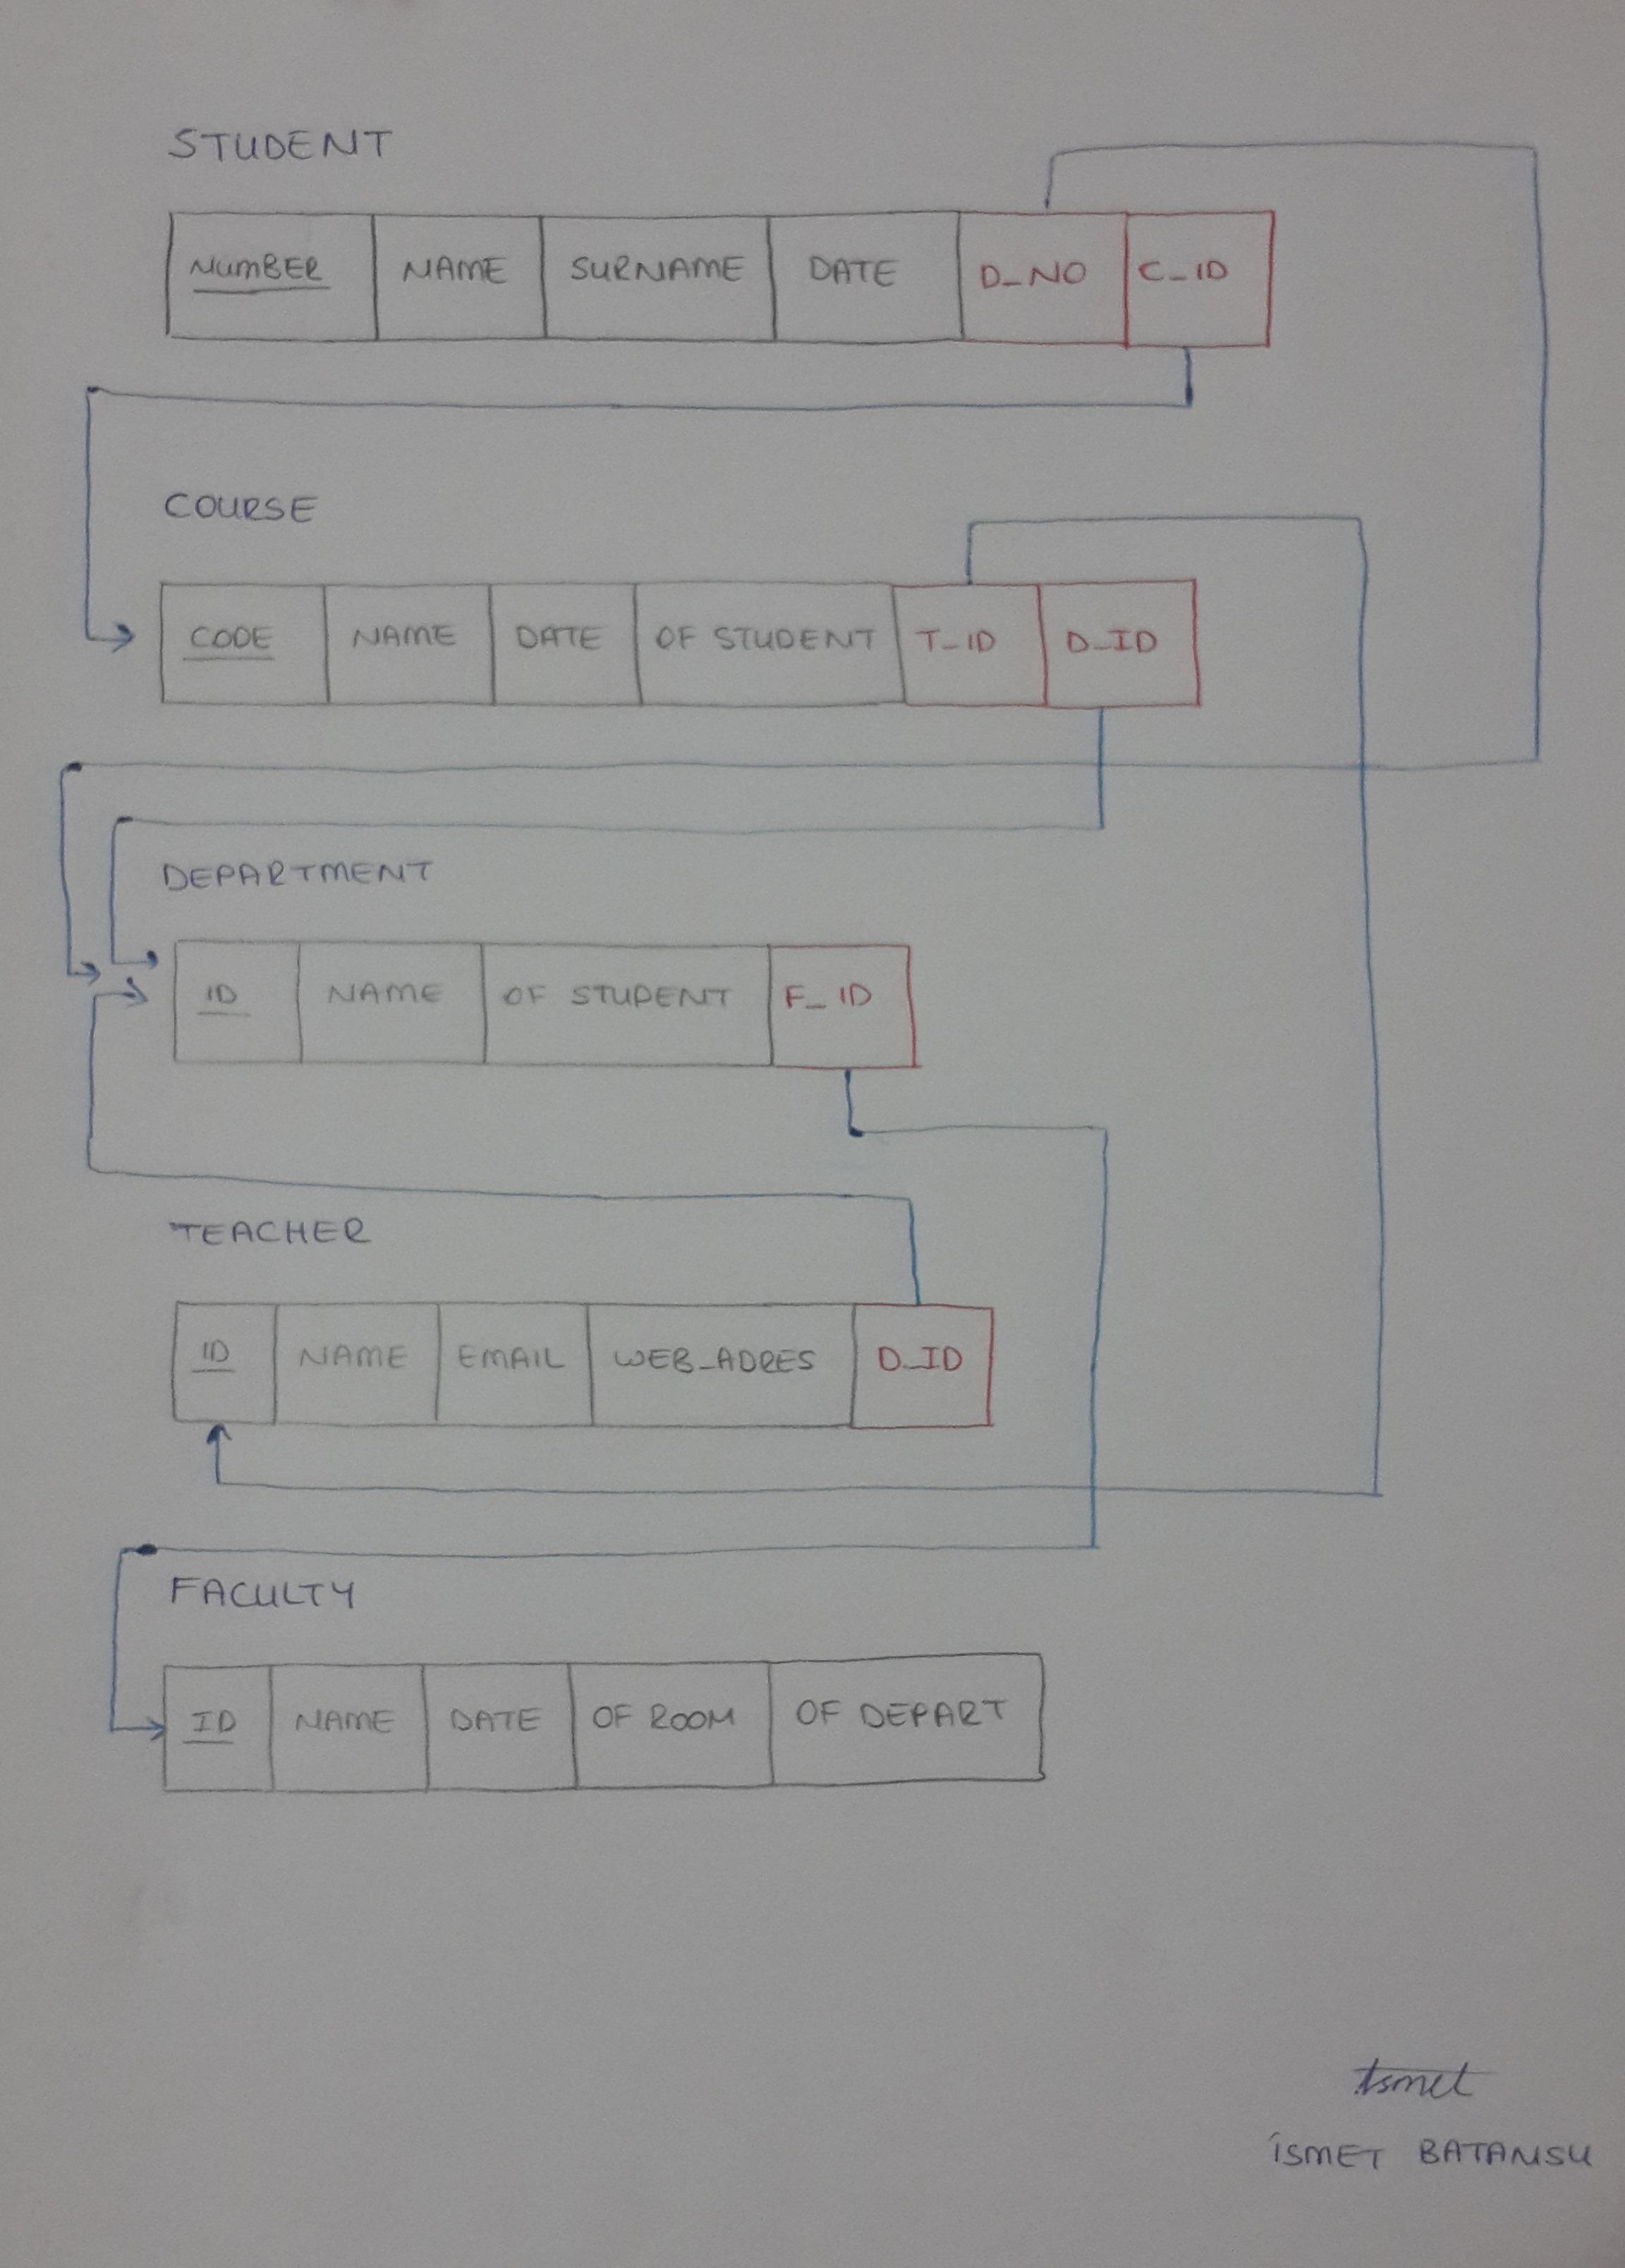 STUDENT
NUMBER NAME SURNAME DATE D_NO C_ID
COURSE
CODE NAME DATE OF STUDENT T_ID D_ID
DEPARTMENT
ID NAME OF STUDENT F_ID
TEACHER
ID NAME EMAIL WEB_ADRES D_ID
FACULTY
ID NAME DATE OF ROOM OF DEPART
ismet
İSMET BATANSU